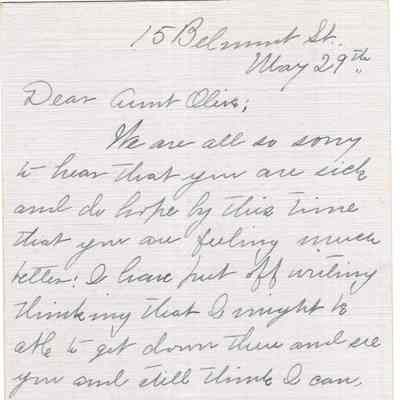 15 Belmont St.
May 29th
Dear Aunt Olive;
We are all so sorry
to hear that you are sick
and do hope by this time
that you are feeling much
better! I have put off writing
thinking that I might be
able to get down there and see
you and still think I can,